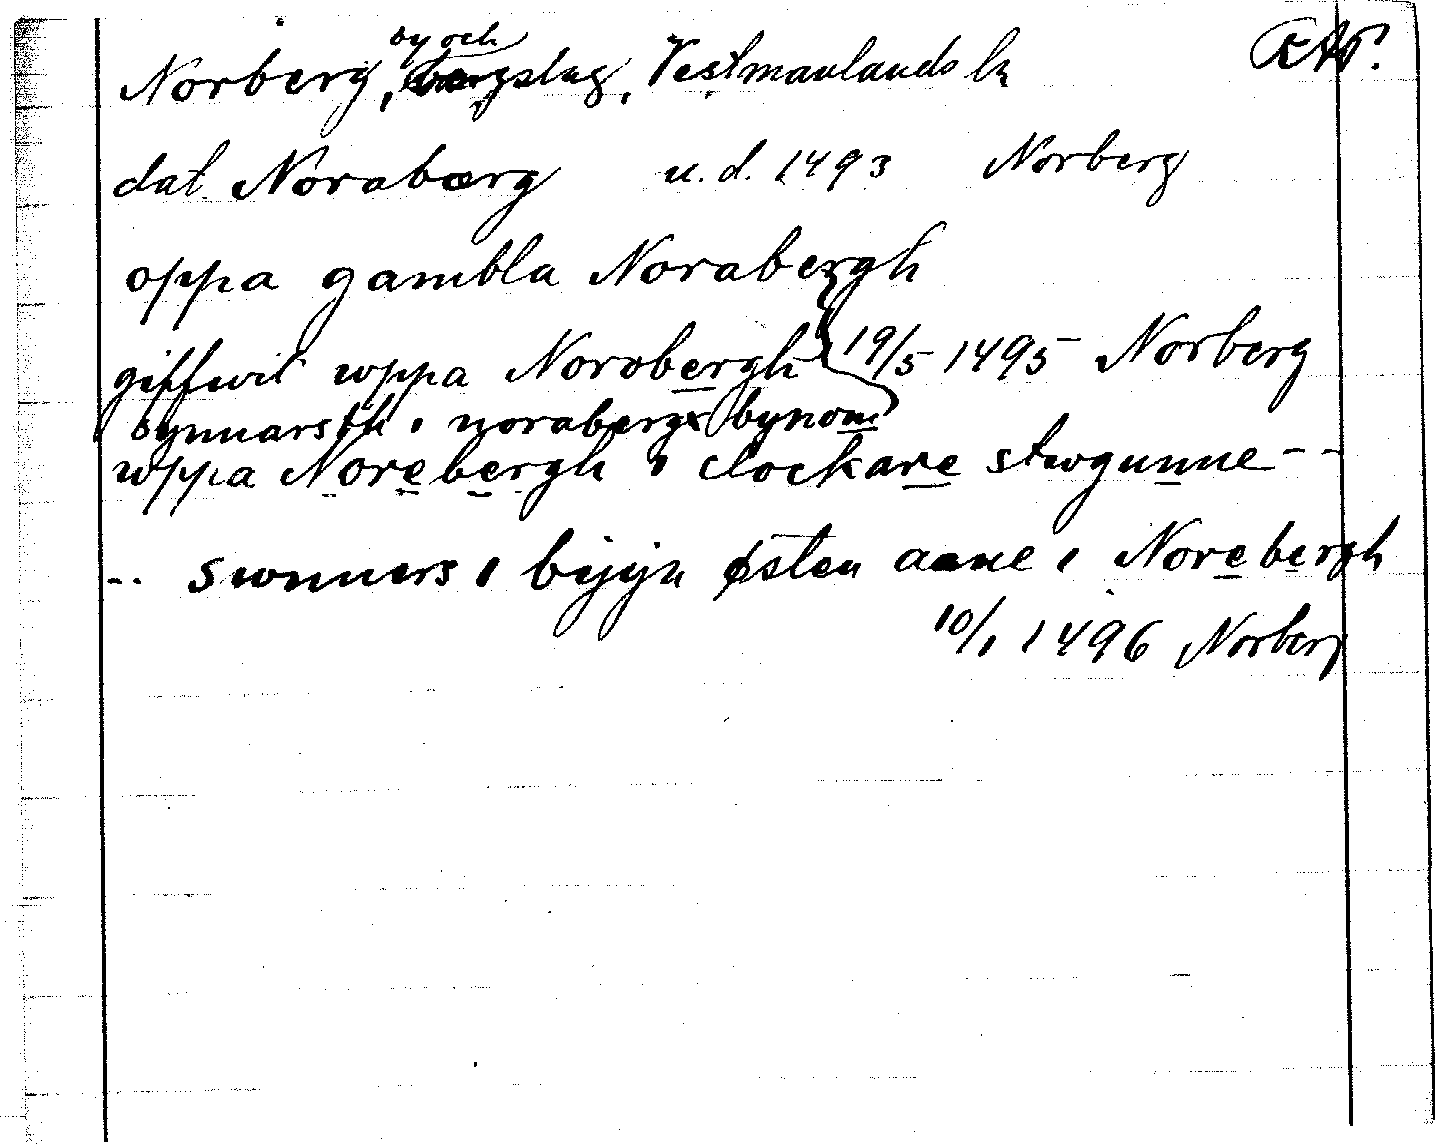 Norberg, by och bergslag, Vestmanlands ln RAP.
dat. Noraberg u.d. 1493 Norberg
oppa gambla Norabergh
giffwit wppa Norobergh 19/5 1495 Norberg
sunnarsth i norabergx bynom
wppa Norebergh i clockare stwgunne --
-- swnners i byyn østen aane i Norebergh
10/1 1496 Norberg